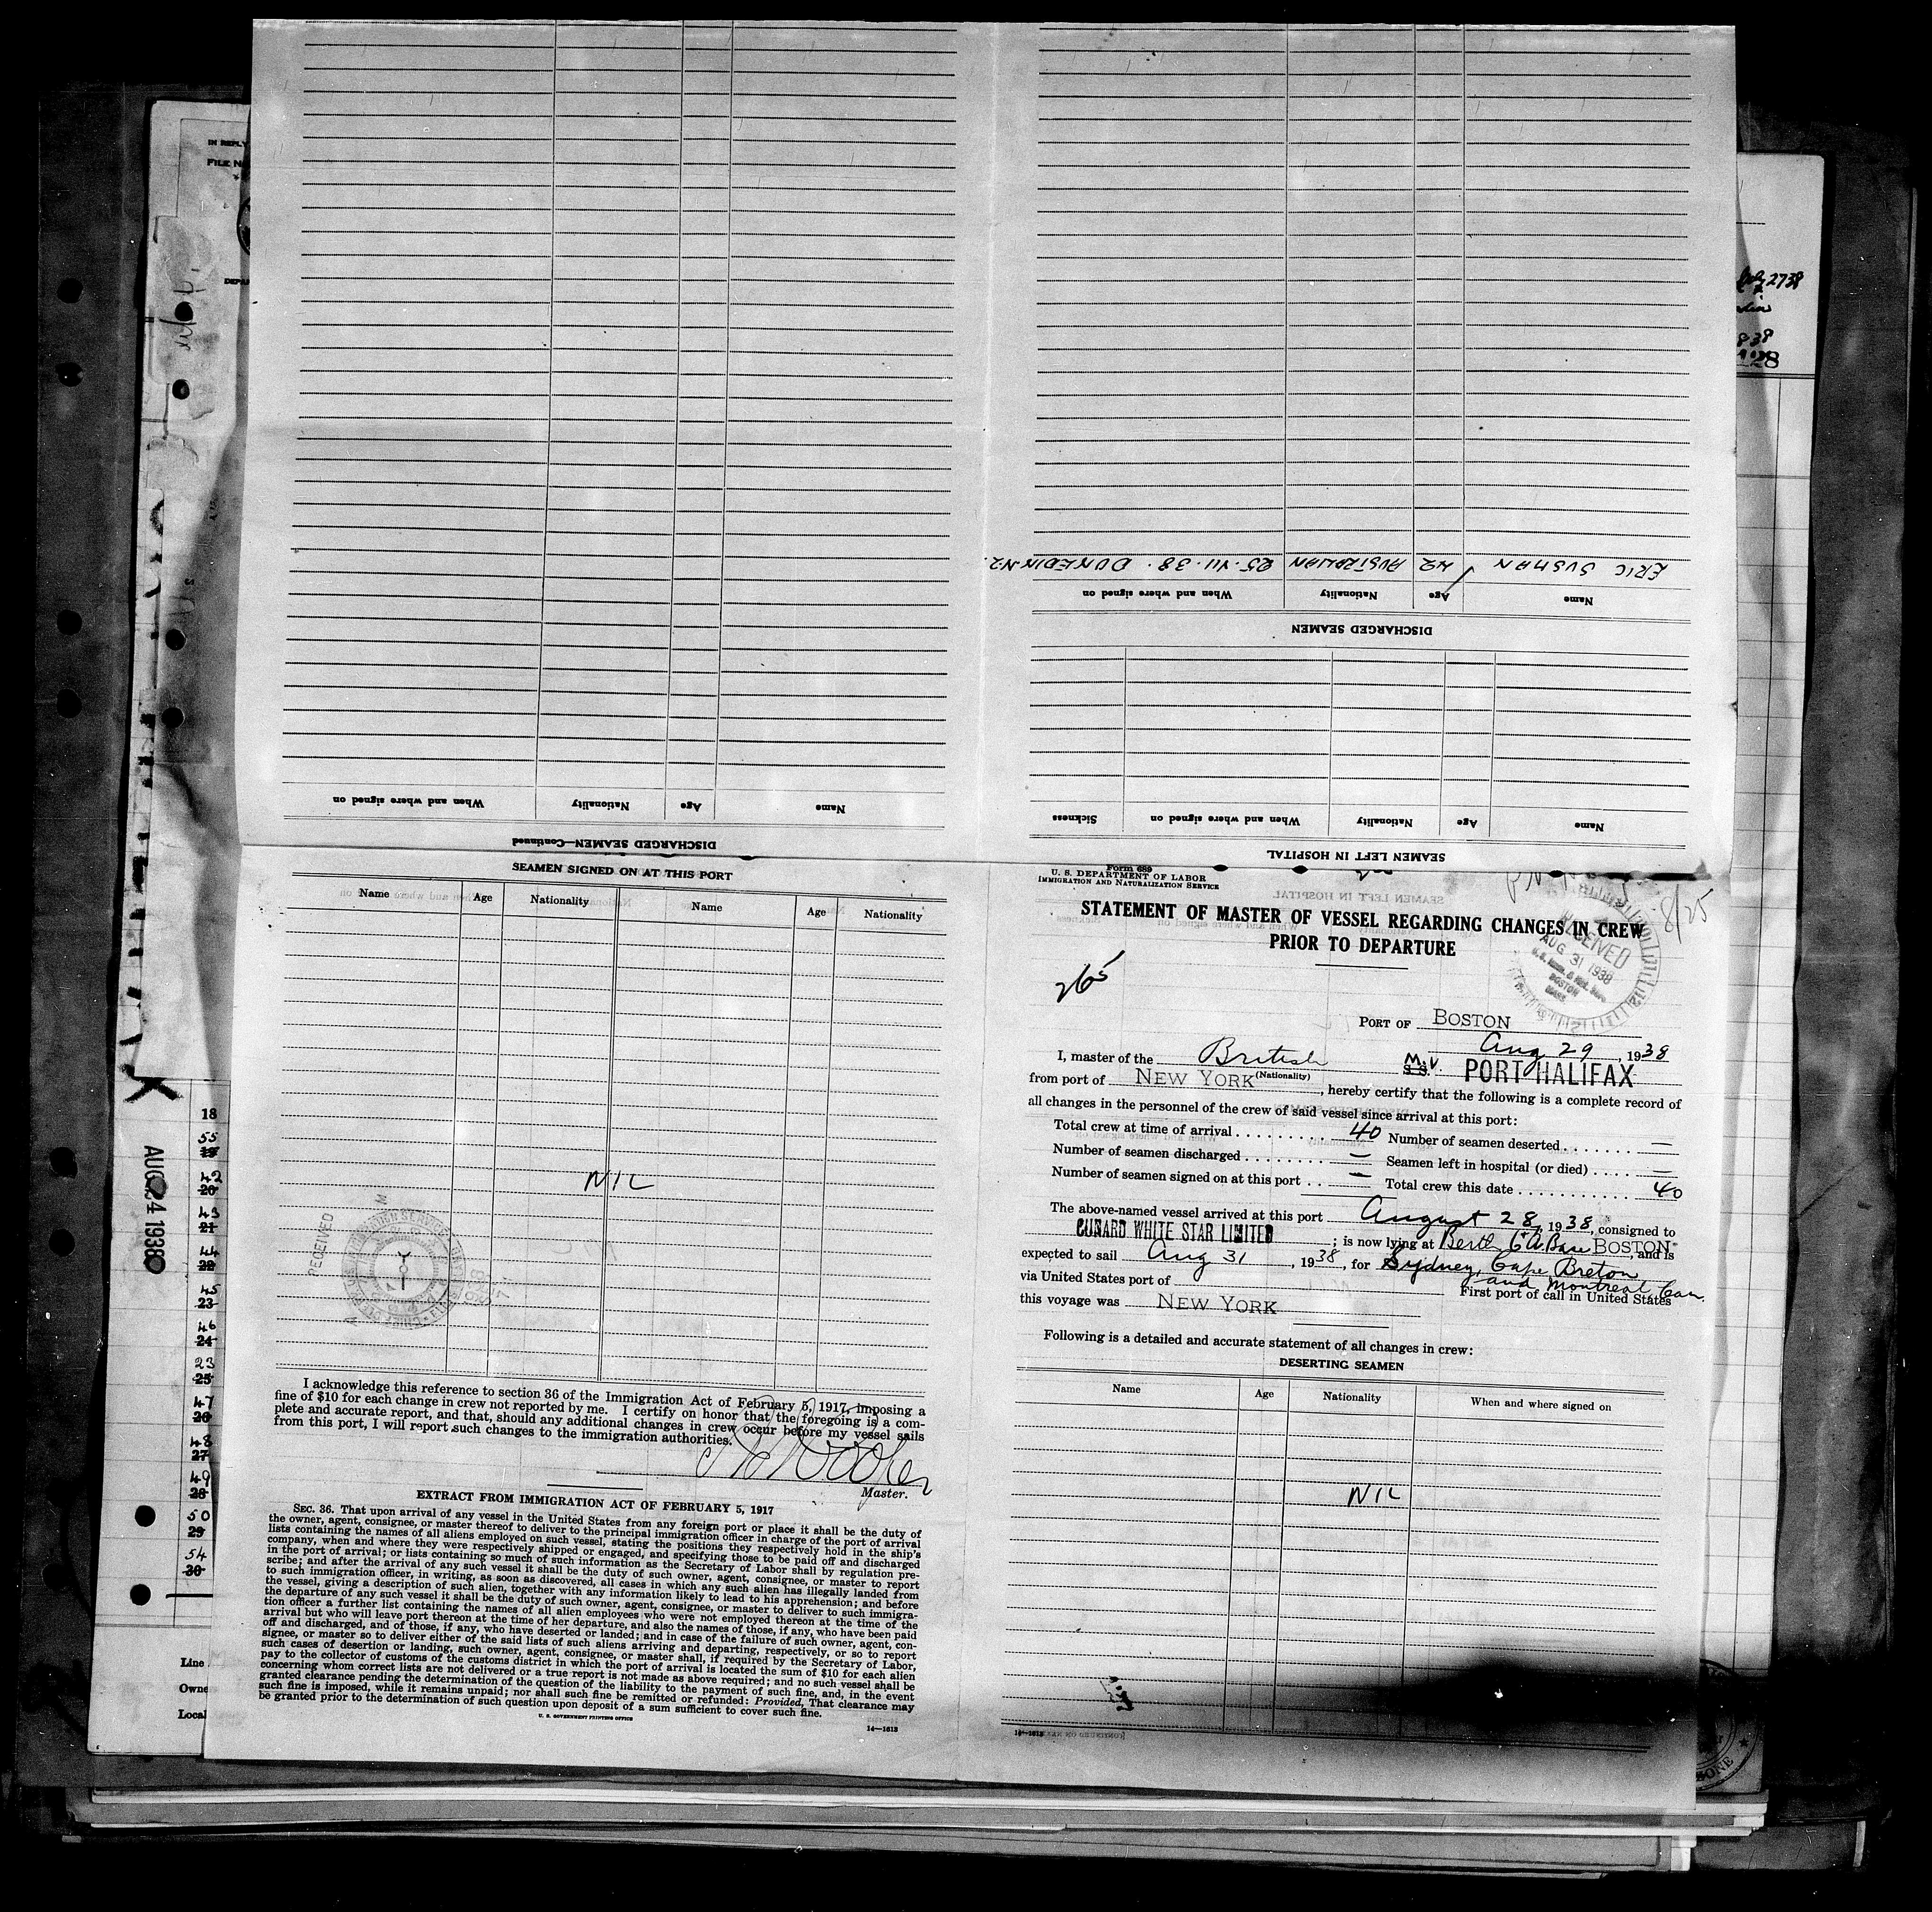 DISCHARGED SEAMEN—Continued
Name Age Nationality When and where signed on
SEAMEN LEFT IN HOSPITAL
Name Age Nationality When and where signed on Sickness
DISCHARGED SEAMEN
Name Age Nationality When and where signed on
ERIC SUSMAN 42 AUSTRALIAN 25.VII.38. DUNEDIN.NZ.
SEAMEN SIGNED ON AT THIS PORT
Name Age Nationality Name Age Nationality
NIL
I acknowledge this reference to section 36 of the Immigration Act of February 5, 1917, imposing a
fine of $10 for each change in crew not reported by me. I certify on honor that the foregoing is a com-
plete and accurate report, and that, should any additional changes in crew occur before my vessel sails
from this port, I will report such changes to the immigration authorities.
Master.
EXTRACT FROM IMMIGRATION ACT OF FEBRUARY 5, 1917
SEC. 36. That upon arrival of any vessel in the United States from any foreign port or place it shall be the duty of
the owner, agent, consignee, or master thereof to deliver to the principal immigration officer in charge of the port of arrival
lists containing the names of all aliens employed on such vessel, stating the positions they respectively hold in the ship's
company, when and where they were respectively shipped or engaged, and specifying those to be paid off and discharged
in the port of arrival; or lists containing so much of such information as the Secretary of Labor shall by regulation pre-
scribe; and after the arrival of any such vessel it shall be the duty of such owner, agent, consignee, or master to report
to such immigration officer, in writing, as soon as discovered, all cases in which any such alien has illegally landed from
the vessel, giving a description of such alien, together with any information likely to lead to his apprehension; and before
the departure of any such vessel it shall be the duty of such owner, agent, consignee, or master to deliver to such immigra-
tion officer a further list containing the names of all alien employees who were not employed thereon at the time of the
arrival but who will leave port thereon at the time of her departure, and also the names of those, if any, who have been paid
off and discharged, and of those, if any, who have deserted or landed; and in case of the failure of such owner, agent, con-
signee, or master so to deliver either of the said lists of such aliens arriving and departing, respectively, or so to report
such cases of desertion or landing, such owner, agent, consignee, or master shall, if required by the Secretary of Labor,
pay to the collector of customs of the customs district in which the port of arrival is located the sum of $10 for each alien
concerning whom correct lists are not delivered or a true report is not made as above required; and no such vessel shall be
granted clearance pending the determination of the question of the liability to the payment of such fine, and, in the event
such fine is imposed, while it remains unpaid; nor shall such fine be remitted or refunded: Provided, That clearance may
be granted prior to the determination of such question upon deposit of a sum sufficient to cover such fine.
U. S. GOVERNMENT PRINTING OFFICE
14—1613
Form 689
U. S. DEPARTMENT OF LABOR
IMMIGRATION AND NATURALIZATION SERVICE
8/25
STATEMENT OF MASTER OF VESSEL REGARDING CHANGES IN CREW
PRIOR TO DEPARTURE
RECEIVED
AUG 31 1938
BOSTON
MASS.
265
PORT OF BOSTON
Aug 29, 1938
I, master of the British M.V. S.S. PORT HALIFAX
(Nationality)
from port of NEW YORK, hereby certify that the following is a complete record of
all changes in the personnel of the crew of said vessel since arrival at this port:
Total crew at time of arrival 40 Number of seamen deserted —
Number of seamen discharged — Seamen left in hospital (or died) —
Number of seamen signed on at this port — Total crew this date 40
The above-named vessel arrived at this port August 28, 1938, consigned to
CUNARD WHITE STAR LIMITED; is now lying at Berth BOSTON, and is
expected to sail Aug 31, 1938, for Sydney, Cape Breton
and Montreal Can.
via United States port of
First port of call in United States
this voyage was NEW YORK
Following is a detailed and accurate statement of all changes in crew:
DESERTING SEAMEN
Name Age Nationality When and where signed on
NIL
14—1613
IN REPLY
FILE N
AUG 24 1938
18
55
42
20
43
21
44
22
45
23
46
24
23
25
47
26
48
27
49
28
50
29
54
30
Line
Owne
Local
RECEIVED